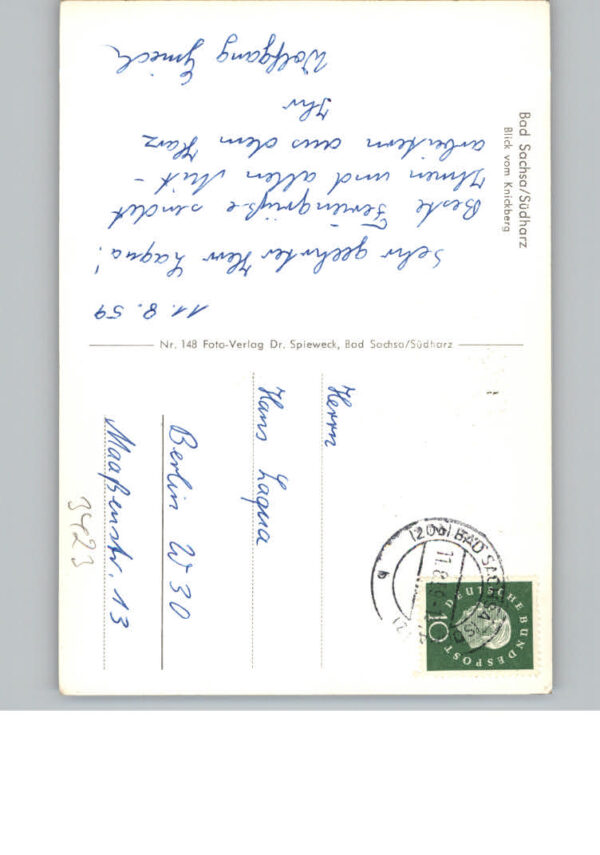 Bad Sachsa/Südharz
Blick vom Knickberg
11.8.59
Sehr geehrter Herr Laqua!
Beste Feriengrüße sendet
Ihnen und allen Mit-
arbeitern aus dem Harz
Ihr
Wolfgang
Nr. 148 Foto-Verlag Dr. Spieweck, Bad Sachsa/Südharz
Herrn
Hans Laqua
Berlin W 30
Maaßenstr. 13
3423
BAD SACHSA
11.8.59
DEUTSCHE BUNDESPOST
10